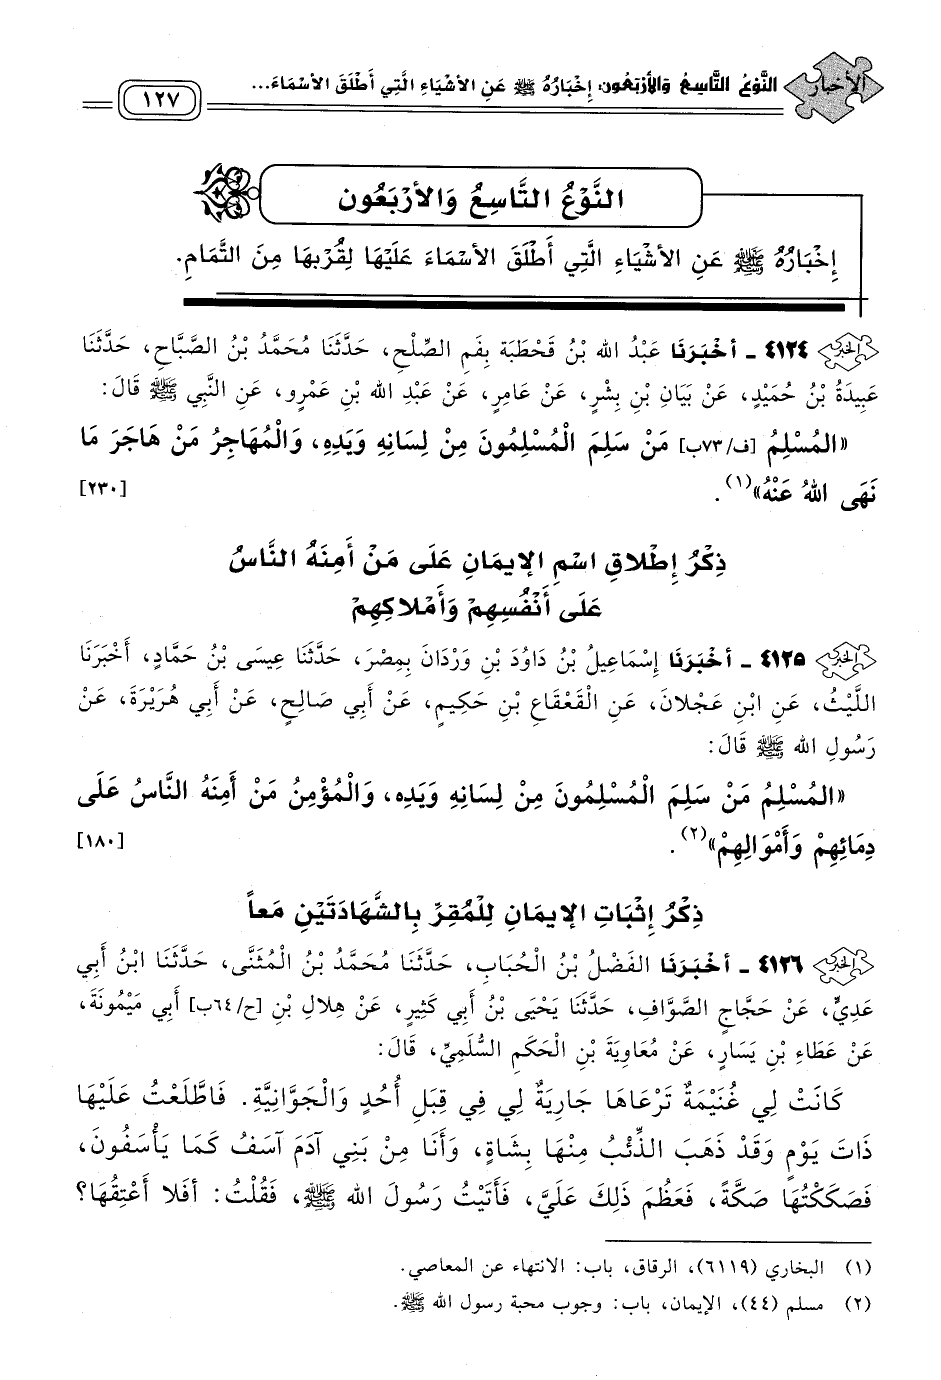 الأخبار
النَّوْعُ التَّاسِعُ وَالأَرْبَعُون: إِخْبَارُهُ ﷺ عَنِ الأَشْيَاءِ الَّتِي أَطْلَقَ الأَسْمَاءَ...
١٢٧
النَّوْعُ التَّاسِعُ وَالأَرْبَعُون
إِخْبَارُهُ ﷺ عَنِ الأَشْيَاءِ الَّتِي أَطْلَقَ الأَسْمَاءَ عَلَيْهَا لِقُرْبِهَا مِنَ التَّمَامِ.
٤١٢٤ - أَخْبَرَنَا عَبْدُ الله بْنُ قَحْطَبَة بِفَمِ الصِّلْحِ، حَدَّثَنَا مُحَمَّدُ بْنُ الصَّبَّاحِ، حَدَّثَنَا
عَبِيدَةُ بْنُ حُمَيْدٍ، عَنْ بَيَانِ بْنِ بِشْرٍ، عَنْ عَامِرٍ، عَنْ عَبْدِ الله بْنِ عَمْرٍو، عَنِ النَّبِي ﷺ قَالَ:
«المُسْلِمُ [ف/٧٣ب] مَنْ سَلِمَ الْمُسْلِمُونَ مِنْ لِسَانِهِ وَيَدِهِ، وَالْمُهَاجِرُ مَنْ هَاجَرَ مَا
نَهَى اللهُ عَنْهُ»(١). [٢٣٠]
ذِكْرُ إِطْلاقِ اسْمِ الإيمَانِ عَلَى مَنْ أَمِنَهُ النَّاسُ
عَلَى أَنْفُسِهِمْ وَأَمْلاكِهِمْ
٤١٢٥ - أَخْبَرَنَا إِسْمَاعِيلُ بْنُ دَاوُدَ بْنِ وَرْدَانَ بِمِصْرَ، حَدَّثَنَا عِيسَى بْنُ حَمَّادٍ، أَخْبَرَنَا
اللَّيْثُ، عَنِ ابْنِ عَجْلانَ، عَنِ الْقَعْقَاعِ بْنِ حَكِيمٍ، عَنْ أَبِي صَالِحٍ، عَنْ أَبِي هُرَيْرَةَ، عَنْ
رَسُولِ الله ﷺ قَالَ:
«المُسْلِمُ مَنْ سَلِمَ الْمُسْلِمُونَ مِنْ لِسَانِهِ وَيَدِهِ، وَالْمُؤْمِنُ مَنْ أَمِنَهُ النَّاسُ عَلَى
دِمَائِهِمْ وَأَمْوَالِهِمْ»(٢). [١٨٠]
ذِكْرُ إِثْبَاتِ الإيمَانِ لِلْمُقِرِّ بِالشَّهَادَتَيْنِ مَعاً
٤١٢٦ - أَخْبَرَنَا الفَضْلُ بْنُ الْحُبَابِ، حَدَّثَنَا مُحَمَّدُ بْنُ الْمُثَنَّى، حَدَّثَنَا ابْنُ أَبِي
عَدِيٍّ، عَنْ حَجَّاجٍ الصَّوَّافِ، حَدَّثَنَا يَحْيَى بْنُ أَبِي كَثِيرٍ، عَنْ هِلالِ بْنِ [ح/٦٤ب] أَبِي مَيْمُونَةَ،
عَنْ عَطَاءِ بْنِ يَسَارٍ، عَنْ مُعَاوِيَةَ بْنِ الْحَكَمِ السُّلَمِيِّ، قَالَ:
كَانَتْ لِي غُنَيْمَةٌ تَرْعَاهَا جَارِيَةٌ لِي فِي قِبَلِ أُحُدٍ وَالْجَوَّانِيَّةِ. فَاطَّلَعْتُ عَلَيْهَا
ذَاتَ يَوْمٍ وَقَدْ ذَهَبَ الذِّئْبُ مِنْهَا بِشَاةٍ، وَأَنَا مِنْ بَنِي آدَمَ آسَفُ كَمَا يَأْسَفُونَ،
فَصَكَكْتُهَا صَكَّةً، فَعَظُمَ ذَلِكَ عَلَيَّ، فَأَتَيْتُ رَسُولَ الله ﷺ، فَقُلْتُ: أَفَلا أَعْتِقُهَا؟
(١) البخاري (٦١١٩)، الرقاق، باب: الانتهاء عن المعاصي.
(٢) مسلم (٤٤)، الإيمان، باب: وجوب محبة رسول الله ﷺ.